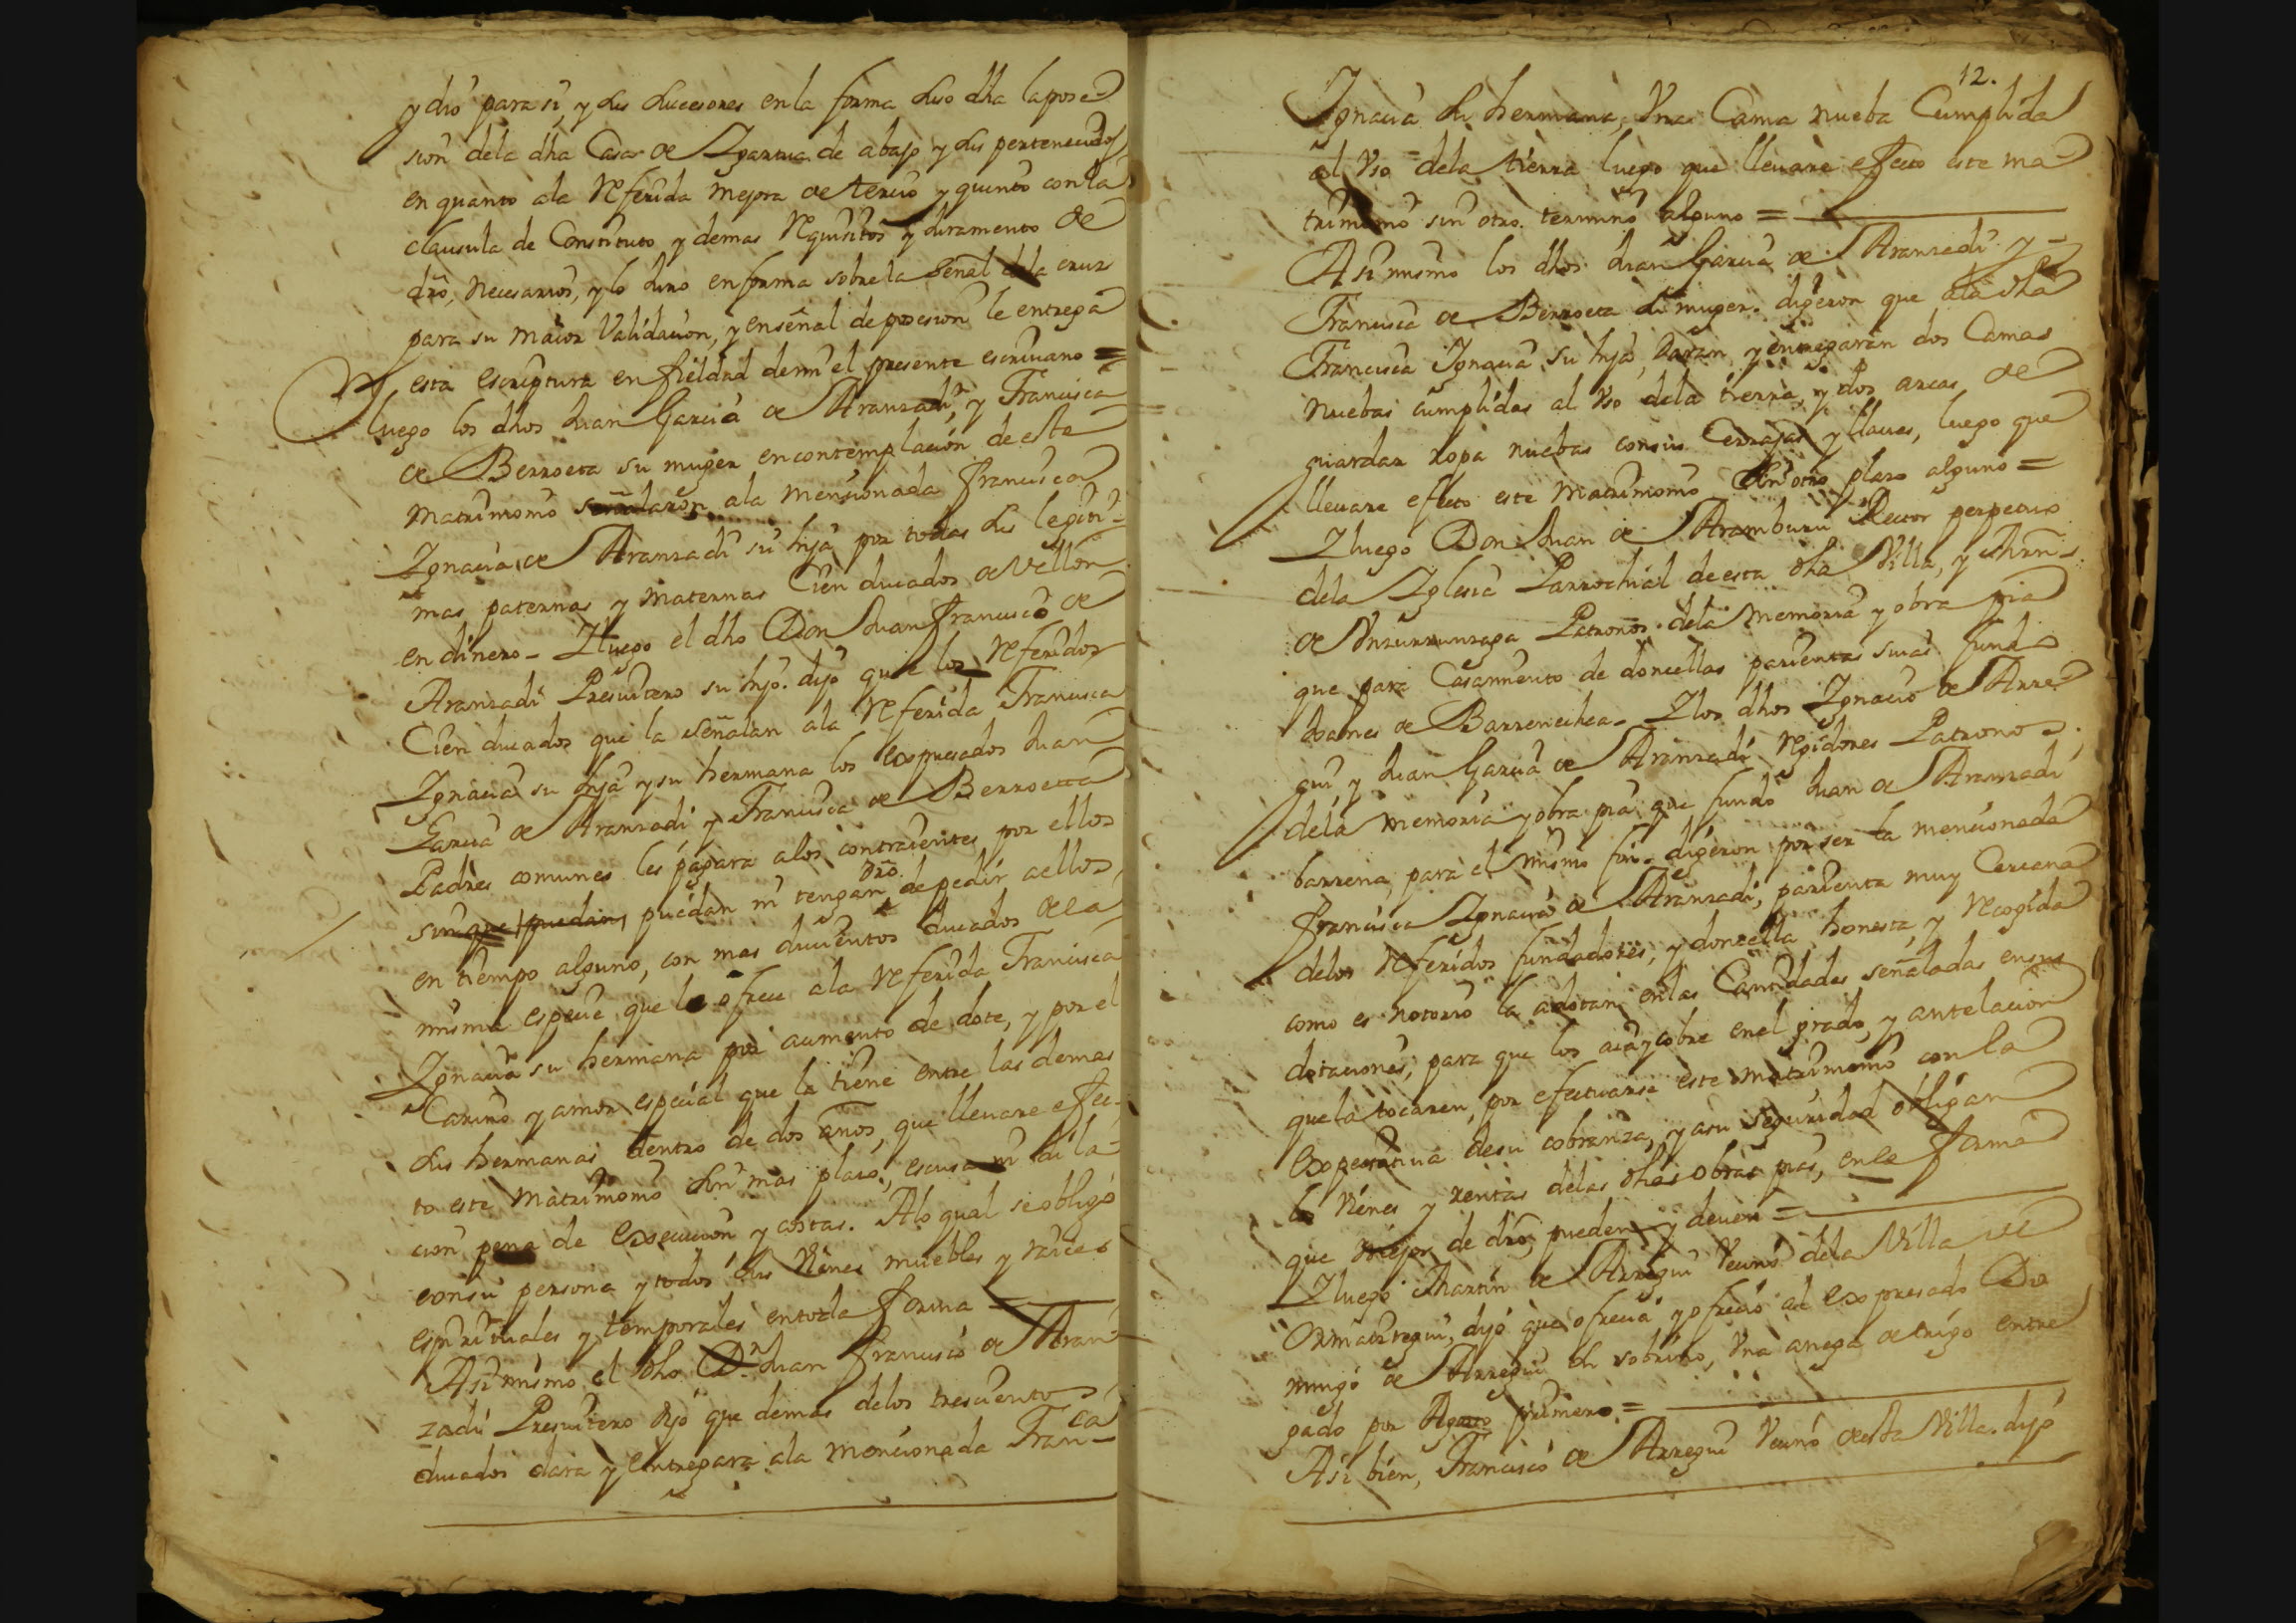 y dio para si, y sus sucesores en la forma suso dha la pose-
sion dela dha Casa de Ygartua de abajo y sus pertenecidos
en quanto ala referida mejora de tercio y quinto con la
clausula de Constituto y demas requisitos y Juramento de
dro, necesarios, y lo Juro en forma sobre la señal dela cruz
para su maior Validacion, y en señal de posesion le entrega
esta escriptura en fieldad de mi el presente escrivano =
Y luego los dhos Juan Garcia de Aranzadi, y Francisca
de Berroeta su muger en contemplacion de este
Matrimonio señalaron ala mencionada Francisca
Ygnacia de Aranzadi su hija por todas sus legiti-
mas paternas y maternas Cien ducados de Vellon
en dinero - Y luego el dho Don Juan Francisco de
Aranzadi Presvitero su hijo. dijo que los referidos
Cien ducados que la señalan ala referida Francisca
Ygnacia su hija y su hermana los expresados Juan
Garcia de Aranzadi y Francisca de Berroetta
Padres comunes les pagara alos contraientes por ellos
sin que puedan, puedan ni tengan dro. de pedir aellos,
en tiempo alguno, con mas ducientos ducados dela
misma especie que le ofrece ala referida Francisca
Ygnacia su hermana por aumento de dote, y por el
Cariño y amor especial que la tiene entre las demas
sus hermanas dentro de dos años, que llevare efec-
to este Matrimonio sin mas plazo, escusa ni dila-
cion pena de execucion y costas. Alo qual se obligó
con su persona y todos sus Vienes muebles y raices
espirituales y temporales en toda forma =
Asi mismo el dho Dn. Juan Francisco de Aran-
zadi Presvitero dijo que demas delos trescientos
ducados dara y entregara ala mencionada Franca
12.
Ygnacia su hermana, Una Cama nueba Cumplida
al Uso dela tierra luego que llevare efecto este ma-
trimonio sin otro termino alguno =
Asi mismo los dhos Juan Garcia de Aranzadi y
Francisca de Berroeta su muger. digeron que ala dha
Francisca Ygnacia su hija, daran y entregaran dos Camas
nuebas cumplidas al Uso dela tierra, y dos arcas de
guardar ropa nuebas con sus Cerrajas y llaves, luego que
llevare efecto este Matrimonio sin otro plazo alguno =
Y luego Don Juan de Aramburu Rector perpetuo
dela Yglesia Parrochial de esta dha Villa, y Mrn.
de Unzurrunzaga Patronos dela Memoria y obra pia
que para Casamiento de doncellas parientas suias fundo
de Barrenechea - Y los dhos Ygnacio de Arre-
gui y Juan Garcia de Aranzadi regidores Patronos
dela memoria y obra pia que fundo Juan de Aranzadi
barrena para el mismo fin. digeron por ser la mencionada
Francisca Ygnacia de Aranzadi, parienta muy Cercana
delos referidos fundadores, y doncella honesta, y recogida
como es notorio la adotan en las Cantidades señaladas en sus
dotaciones, para que los aia y cobre en el grado, y antelacion
que la tocaren, por efectuarse este matrimonio con la
expectativa de su cobranza, y a su seguridad obligan
los Vienes y rentas delas dhas obras pias, en la forma
que mejor de dro, pueden y deven =
Y luego Martin de Arregui Vecino dela Villa de
Ormaiztegui, dijo que ofrecia y ofrecio al expresado Do
mingo de Arregui su sobrino, Una anega de trigo entre
gado por Agosto primero =
Asi bien, Francisco de Arregui Vecino de esta Villa. dijo